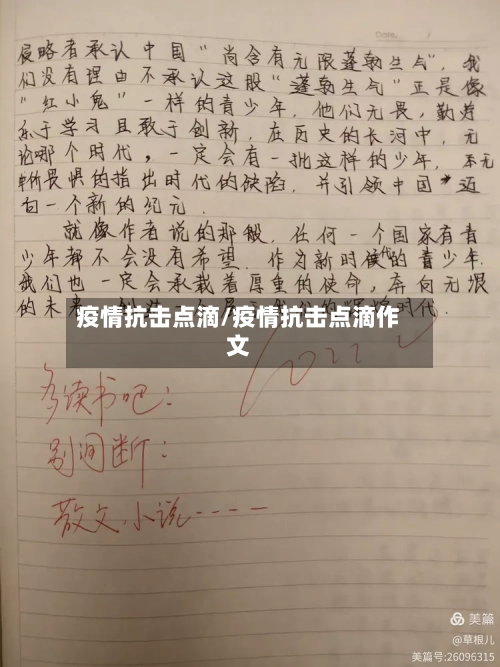 侵略者承认中国“尚含有无限蓬勃生气”,我
们没有理由不承认这股“蓬勃生气”正是像
“红小鬼”一样的青少年,他们无畏,勤劳
乐于学习且敢于创新,在历史的长河中,无
论哪个时代,一定会有一批这样的少年,
畏惧的指出时代的缺陷,并引领中国迈
向一个新的纪元.
就像作者说的那般,任何一个国家有青
少年都不会没有希望.作为新时代的青少年.
我们也一定会承载着厚重的使命,奔向无垠
的未来
时代.
疫情抗击点滴/疫情抗击点滴作
文
多读书吧:
别间断:
散文、小说----
美篇
@草根儿
美篇号:26096315